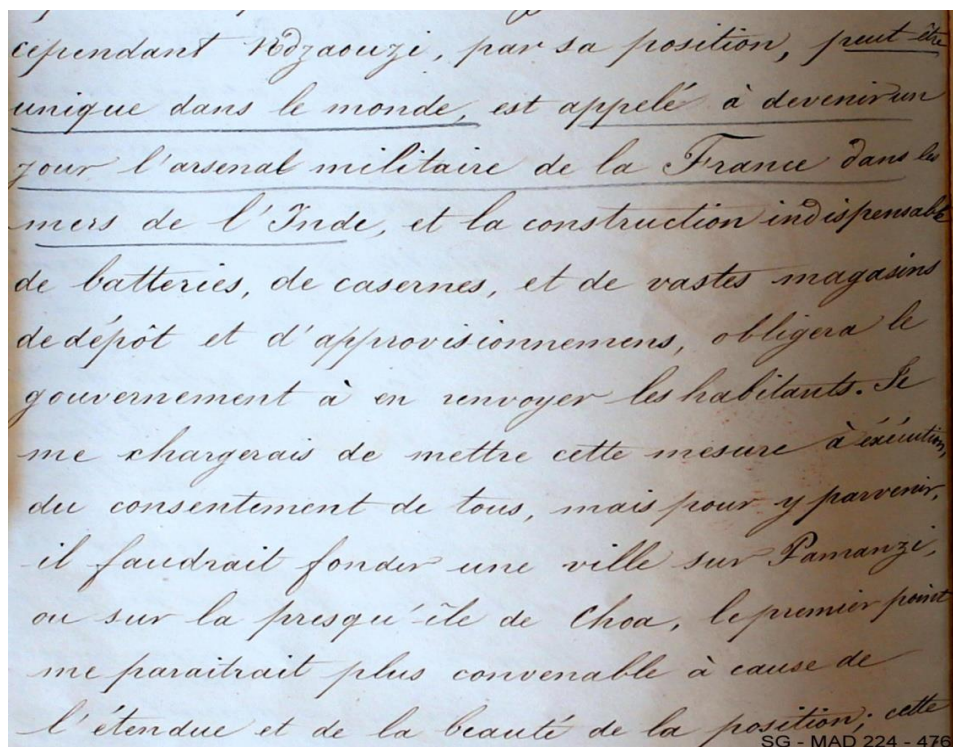 cependant Vdzaouzi, par sa position, peut être
unique dans le monde, est appelé à devenir un
jour l'arsenal militaire de la France dans les
mers de l'Inde, et la construction indispensable
de batteries, de casernes, et de vastes magasins
de dépôt et d'approvisionnemens, obligera le
gouvernement à en renvoyer les habitants. Je
me chargerais de mettre cette mesure à exécution,
du consentement de tous, mais pour y parvenir,
il faudrait fonder une ville sur Pamanzi,
ou sur la presqu'île de Choa, le premier point
me paraitrait plus convenable à cause de
l'étendue et de la beauté de la position; cette
SG - MAD 224 - 476